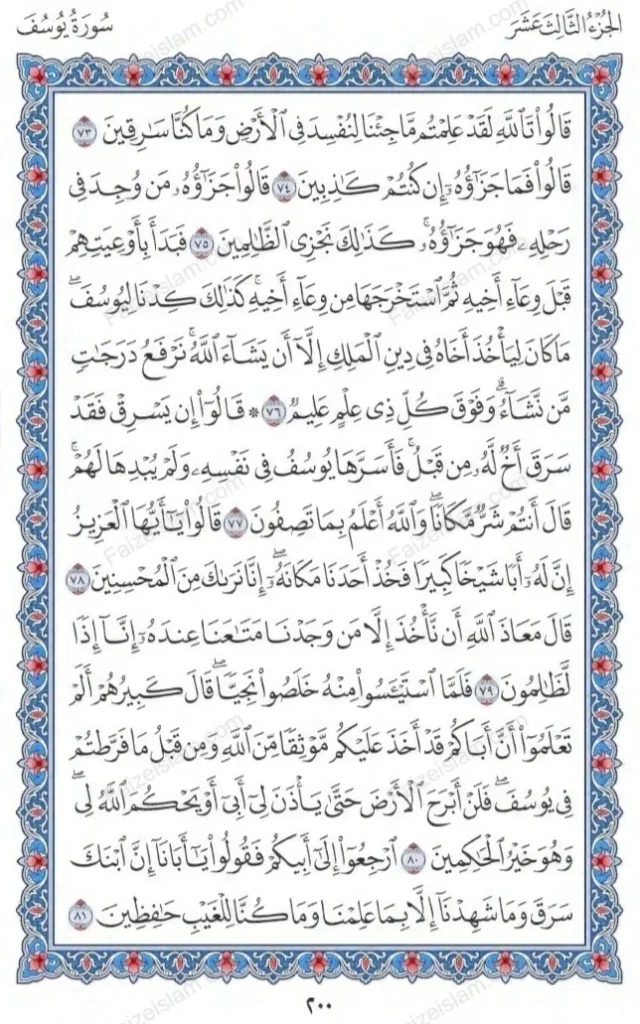 الجُزْءُ الثَّالِثَ عَشَرَ
سُورَةُ يُوسُفَ
قَالُوا۟ تَٱللَّهِ لَقَدْ عَلِمْتُم مَّا جِئْنَا لِنُفْسِدَ فِى ٱلْأَرْضِ وَمَا كُنَّا سَـٰرِقِينَ ٧٣
قَالُوا۟ فَمَا جَزَٰٓؤُهُۥٓ إِن كُنتُمْ كَـٰذِبِينَ ٧٤ قَالُوا۟ جَزَٰٓؤُهُۥ مَن وُجِدَ فِى
رَحْلِهِۦ فَهُوَ جَزَٰٓؤُهُۥ ۚ كَذَٰلِكَ نَجْزِى ٱلظَّـٰلِمِينَ ٧٥ فَبَدَأَ بِأَوْعِيَتِهِمْ
قَبْلَ وِعَآءِ أَخِيهِ ثُمَّ ٱسْتَخْرَجَهَا مِن وِعَآءِ أَخِيهِ ۚ كَذَٰلِكَ كِدْنَا لِيُوسُفَ ۖ
مَا كَانَ لِيَأْخُذَ أَخَاهُ فِى دِينِ ٱلْمَلِكِ إِلَّآ أَن يَشَآءَ ٱللَّهُ ۚ نَرْفَعُ دَرَجَـٰتٍ
مَّن نَّشَآءُ ۗ وَفَوْقَ كُلِّ ذِى عِلْمٍ عَلِيمٌ ٧٦ ۞ قَالُوٓا۟ إِن يَسْرِقْ فَقَدْ
سَرَقَ أَخٌ لَّهُۥ مِن قَبْلُ ۚ فَأَسَرَّهَا يُوسُفُ فِى نَفْسِهِۦ وَلَمْ يُبْدِهَا لَهُمْ ۚ
قَالَ أَنتُمْ شَرٌّ مَّكَانًا ۖ وَٱللَّهُ أَعْلَمُ بِمَا تَصِفُونَ ٧٧ قَالُوا۟ يَـٰٓأَيُّهَا ٱلْعَزِيزُ
إِنَّ لَهُۥٓ أَبًا شَيْخًا كَبِيرًا فَخُذْ أَحَدَنَا مَكَانَهُۥٓ ۖ إِنَّا نَرَىٰكَ مِنَ ٱلْمُحْسِنِينَ ٧٨
قَالَ مَعَاذَ ٱللَّهِ أَن نَّأْخُذَ إِلَّا مَن وَجَدْنَا مَتَـٰعَنَا عِندَهُۥٓ إِنَّآ إِذًا
لَّظَـٰلِمُونَ ٧٩ فَلَمَّا ٱسْتَيْـَٔسُوا۟ مِنْهُ خَلَصُوا۟ نَجِيًّا ۖ قَالَ كَبِيرُهُمْ أَلَمْ
تَعْلَمُوٓا۟ أَنَّ أَبَاكُمْ قَدْ أَخَذَ عَلَيْكُم مَّوْثِقًا مِّنَ ٱللَّهِ وَمِن قَبْلُ مَا فَرَّطتُمْ
فِى يُوسُفَ ۖ فَلَنْ أَبْرَحَ ٱلْأَرْضَ حَتَّىٰ يَأْذَنَ لِىٓ أَبِىٓ أَوْ يَحْكُمَ ٱللَّهُ لِى ۖ
وَهُوَ خَيْرُ ٱلْحَـٰكِمِينَ ٨٠ ٱرْجِعُوٓا۟ إِلَىٰٓ أَبِيكُمْ فَقُولُوا۟ يَـٰٓأَبَانَآ إِنَّ ٱبْنَكَ
سَرَقَ وَمَا شَهِدْنَآ إِلَّا بِمَا عَلِمْنَا وَمَا كُنَّا لِلْغَيْبِ حَـٰفِظِينَ ٨١
٢٠٠
Faizeislam.com